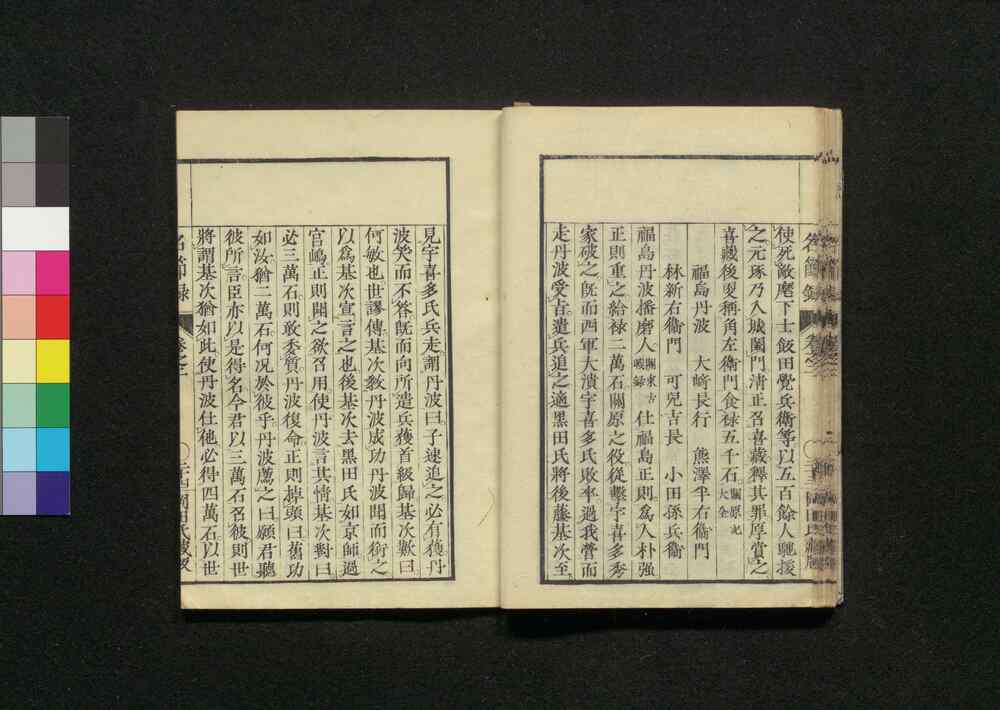 使死敵麾下士飯田覺兵衛等以五百餘人馳援
之元琢乃入城闔門淸正召喜藏釋其罪厚賞之
喜藏後更稱角左衛門食祿五千石關原記大全
福島丹波 大﨑長行 熊澤半右衞門
林新右衞門 可兒吉長 小田孫兵衞
福島丹波播磨人關東古戰録仕福島正則爲人朴强
正則重之給祿二萬石關原之役從擊宇喜多秀
家破之旣而西軍大潰宇喜多氏敗卒過我營而
走丹波受旨遣兵追之適黑田氏將後藤基次至
見宇喜多氏兵走謂丹波曰子速追之必有獲丹
波笑而不答旣而向所遣兵獲首級歸基次歎曰
何敏也世謬傳基次敎丹波成功丹波聞而銜之
以爲基次宣言之也後基次去黑田氏如京師過
官嶋正則聞之欲召用使丹波言其情基次對曰
必三萬石則敢委質丹波復命正則掉頭曰舊功
如汝猶二萬石何况於彼乎丹波薦之曰願君聽
彼所言臣亦以是得名今君以三萬石召彼則世
將謂基次猶如此使丹波仕他必得四萬石以世
名節録 卷之二